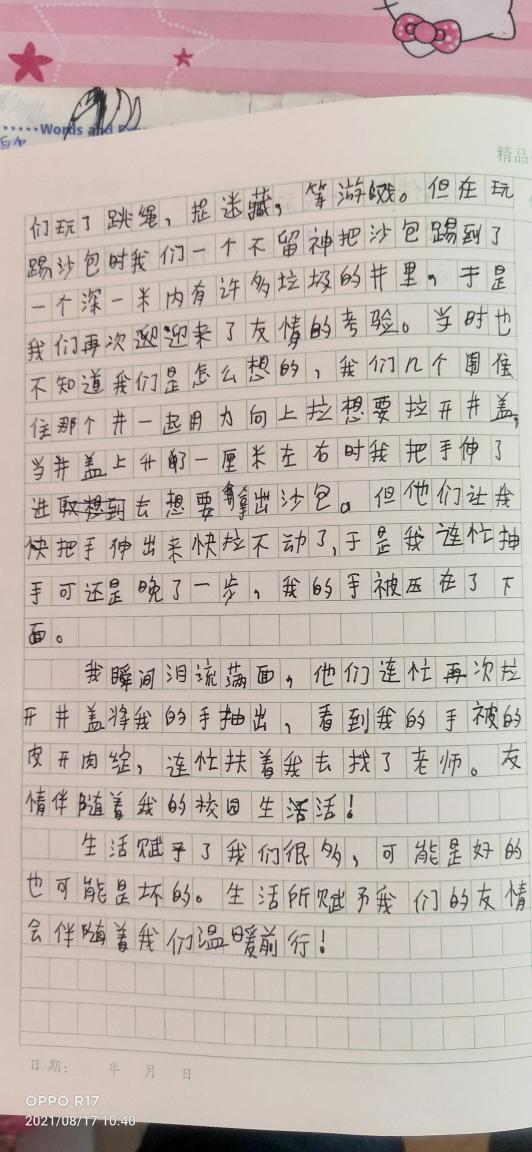 Words and
精品
们玩了跳绳，捉迷藏，等游戏。但在玩
踢沙包时我们一个不留神把沙包踢到了
一个深一米内有许多垃圾的井里，于是
我们再次迎来了友情的考验。当时也
不知道我们是怎么想的，我们几个围住
住那个井一起用力向上拉想要拉开井盖，
当井盖上升了一厘米左右时我把手伸了
进去想要拿出沙包。但他们让我
快把手伸出来快拉不动了，于是我连忙抽
手可还是晚了一步，我的手被压在了下
面。
我瞬间泪流满面，他们连忙再次拉
开井盖将我的手抽出，看到我的手被的
皮开肉绽，连忙扶着我去找了老师。友
情伴随着我的校园生活！
生活赋予了我们很多，可能是好的
也可能是坏的。生活所赋予我们的友情
会伴随着我们温暖前行！
日期： 年 月 日
OPPO R17
2021/08/17 10:40